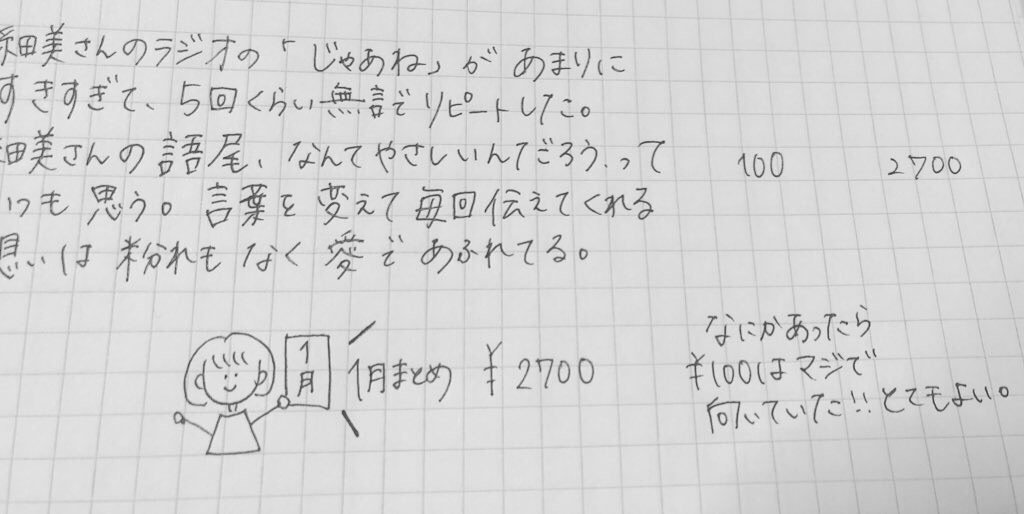 細美さんのラジオの「じゃあね」があまりに
すきすぎて、5回くらい無言でリピートしたこ。
細美さんの語尾、なんてやさしいんだろう、って
いつも思う。言葉を変えて毎回伝えてくれる
思いは紛れもなく愛であふれてる。
100 2700
1月
1月まとめ ¥2700
なにかあったら
¥100はマジで
向いていた!!とてもよい。